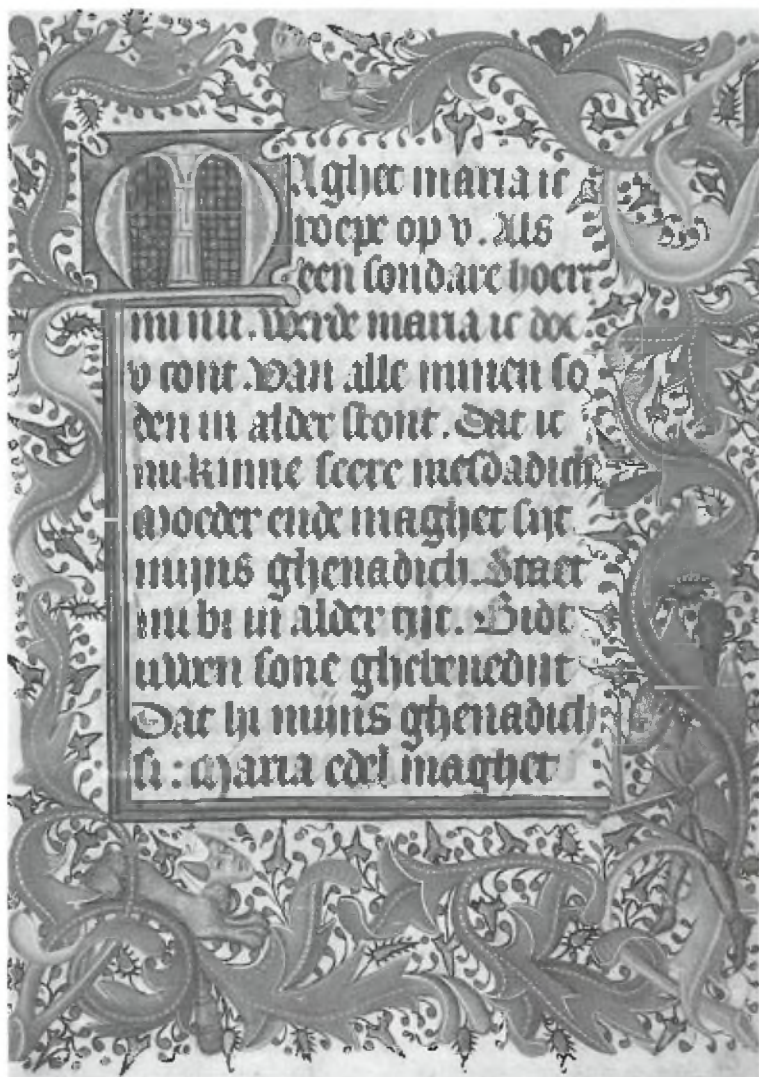 Maghet maria ic
roepe op v. Als
een sondare hoert
mi nu. werde maria ic doe
v cont. Van alle minen so
den in alder stont. Dat ic
mi kinne seere mesdadich
Moeder ende maghet sijt
mijns ghenadich. Staet
mi bi in alder tijt. Bidt
uwen sone ghebenedijt
Dat hi mijns ghenadich
si: Maria edel maghet